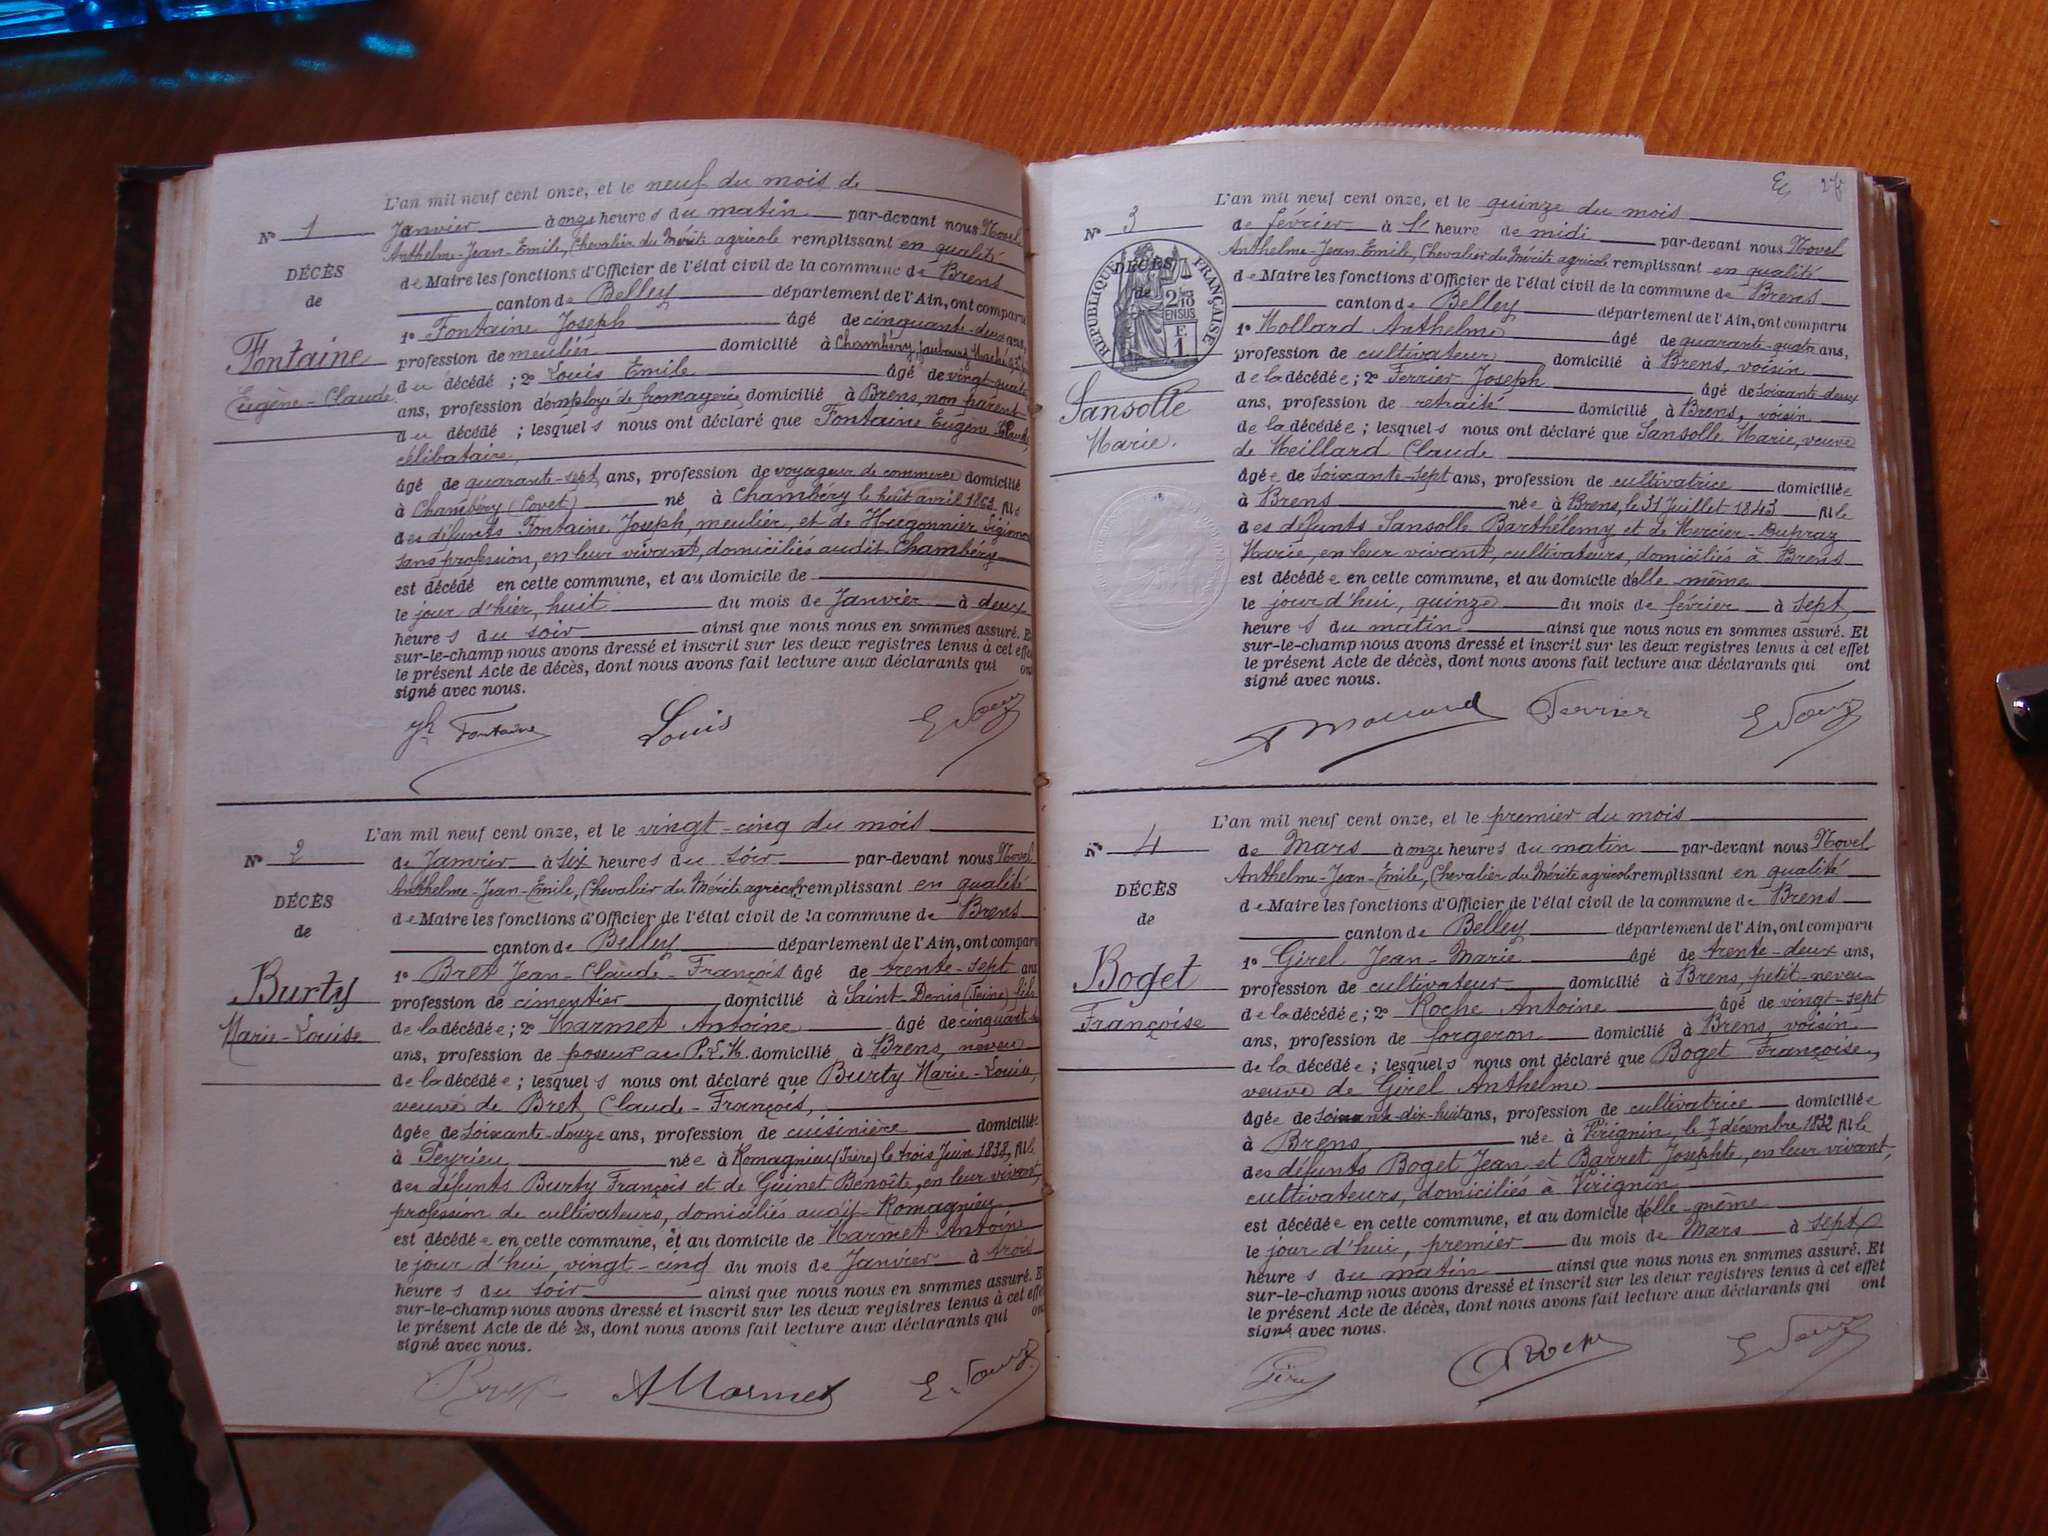 L'an mil neuf cent onze, et le neuf du mois de
N° 1 Janvier à onze heures du matin par-devant nous Novel
Anthelme-Jean-Emile, Chevalier du Mérite agricole remplissant en qualité
DÉCÈS de Maire les fonctions d'Officier de l'état civil de la commune de Brens
de canton de Belley département de l'Ain, ont comparu
1° Fontaine Joseph âgé de cinquante-deux ans,
Fontaine profession de meulier domicilié à Chambéry, faubourg
Eugène-Claude du décédé ; 2° Louis Emile âgé de vingt-quatre
ans, profession d'employé de fromagerie domicilié à Brens, non parent
du décédé ; lesquels nous ont déclaré que Fontaine Eugène-Claude,
célibataire,
âgé de quarante-sept ans, profession de voyageur de commerce domicilié
à Chambéry (Covet) né à Chambéry le huit avril 1863 fils
des défunts Fontaine Joseph, meulier, et de Hugonnier
sans profession, en leur vivant, domiciliés audit Chambéry
est décédé en cette commune, et au domicile de
le jour d'hier, huit du mois de Janvier à deux
heures du soir ainsi que nous nous en sommes assuré. Et
sur-le-champ nous avons dressé et inscrit sur les deux registres tenus à cet effet
le présent Acte de décès, dont nous avons fait lecture aux déclarants qui ont
signé avec nous.
Jh Fontaine Louis
L'an mil neuf cent onze, et le vingt-cinq du mois
N° 2 de Janvier à six heures du soir par-devant nous Novel
Anthelme-Jean-Emile, Chevalier du Mérite agricole remplissant en qualité
DÉCÈS de Maire les fonctions d'Officier de l'état civil de la commune de Brens
de canton de Belley département de l'Ain, ont comparu
1° Bret Jean-Claude-François âgé de trente-sept ans
Burty profession de cimentier domicilié à Saint-Denis (Seine), fils
Marie-Louise de la décédée ; 2° Marmet Antoine âgé de cinquante
ans, profession de poseur au P.L.M. domicilié à Brens, neveu
de la décédée ; lesquels nous ont déclaré que Burty Marie-Louise,
veuve de Bret, Claude-François,
âgée de soixante-douze ans, profession de cuisinière domiciliée
à Peyrieu née à Romagnieu (Isère) le trois Juin 1838, fille
des défunts Burty François et de Guinet Benoîte, en leur vivant,
profession de cultivateurs, domiciliés audit Romagnieu
est décédée en cette commune, et au domicile de Marmet Antoine
le jour d'hui, vingt-cinq du mois de Janvier à trois
heures du soir ainsi que nous nous en sommes assuré. Et
sur-le-champ nous avons dressé et inscrit sur les deux registres tenus à cet effet
le présent Acte de décès, dont nous avons fait lecture aux déclarants qui ont
signé avec nous.
Bret A Marmet
L'an mil neuf cent onze, et le quinze du mois
N° 3 de février à 1' heure de midi par-devant nous Novel
Anthelme-Jean-Emile, Chevalier du Mérite agricole remplissant en qualité
DÉCÈS de Maire les fonctions d'Officier de l'état civil de la commune de Brens
de canton de Belley département de l'Ain, ont comparu
RÉPUBLIQUE FRANÇAISE
2/10 EN SUS
F. 1
1° Mollard Anthelme âgé de quarante-quatre ans,
profession de cultivateur domicilié à Brens, voisin
de la décédée ; 2° Ferrier Joseph âgé de soixante-deux
Sansolle ans, profession de retraité domicilié à Brens, voisin
Marie. de la décédée ; lesquels nous ont déclaré que Sansolle Marie, veuve
de Meillard Claude
âgée de soixante-sept ans, profession de cultivatrice domiciliée
à Brens née à Brens, le 31 Juillet 1843 fille
des défunts Sansolle Barthélemy et de Mercier-Dupraz
Marie, en leur vivant, cultivateurs, domiciliés à Brens
est décédée en cette commune, et au domicile d'elle-même
le jour d'hui, quinze du mois de février à sept,
heures du matin ainsi que nous nous en sommes assuré. Et
sur-le-champ nous avons dressé et inscrit sur les deux registres tenus à cet effet
le présent Acte de décès, dont nous avons fait lecture aux déclarants qui ont
signé avec nous.
A Mollard Ferrier
L'an mil neuf cent onze, et le premier du mois
N° 4 de Mars à onze heures du matin par-devant nous Novel
Anthelme-Jean-Emile, Chevalier du Mérite agricole remplissant en qualité
DÉCÈS de Maire les fonctions d'Officier de l'état civil de la commune de Brens
de canton de Belley département de l'Ain, ont comparu
1° Girel Jean-Marie âgé de trente-deux ans,
Boget profession de cultivateur domicilié à Brens, petit-neveu
Françoise de la décédée ; 2° Roche Antoine âgé de vingt-sept
ans, profession de forgeron domicilié à Brens, voisin
de la décédée ; lesquels nous ont déclaré que Boget Françoise,
veuve de Girel Anthelme
âgée de soixante-dix-huit ans, profession de cultivatrice domiciliée
à Brens née à Virignin, le 7 décembre 1832 fille
des défunts Boget Jean et Barret Josephte, en leur vivant,
cultivateurs, domiciliés à Virignin
est décédée en cette commune, et au domicile d'elle-même
le jour d'hui, premier du mois de Mars à sept
heures du matin ainsi que nous nous en sommes assuré. Et
sur-le-champ nous avons dressé et inscrit sur les deux registres tenus à cet effet
le présent Acte de décès, dont nous avons fait lecture aux déclarants qui ont
signé avec nous.
Roche